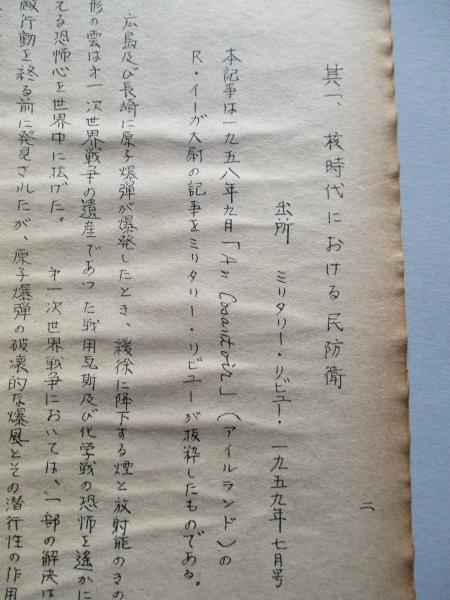 其一、核時代における民防衛
出所 ミリタリー・リビュー・一九五九年七月号
本記事は一九五八年九月「An Cosantoir」(アイルランド)の
R・イーガ大尉の記事をミリタリー・リビューが抜粋したものである。
広島及び長崎に原子爆弾が爆発したとき、緩徐に降下する煙と放射能のきの
形の雲は才一次世界戦争の遺産であつた戦用瓦斯及び化学戦の恐怖を遙かに
てる恐怖心を世界中に拡げた。 才一次世界戦争においては、一部の解決は
敵行動を終る前に発見されたが、原子爆弾の破壊的な爆風とその潜行性の作用
二